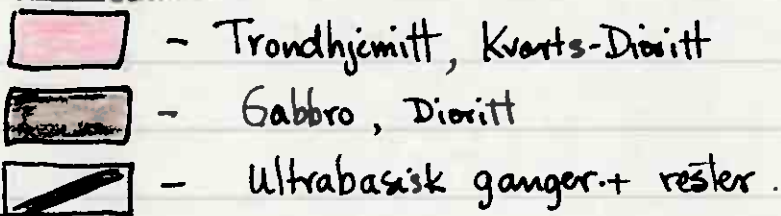 - Trondhjemitt, Kvarts-Dioritt
- Gabbro, Dioritt
- Ultrabasisk ganger + rester.